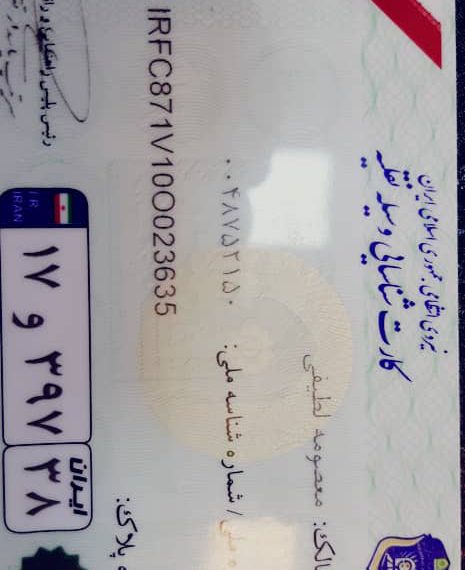 نیروی انتظامی جمهوری اسلامی ایران
کارت شناسایی وسیله نقلیه
الک: معصومه لطیفی
ملی / شماره شناسه ملی: ۰۰۴۸۷۵۲۱۵۰
IRFC871V10O023635
پلاک:
رئیس پلیس راهنمایی و
I.R.
IRAN
۱۷ و ۳۹۷
ایران
۳۸